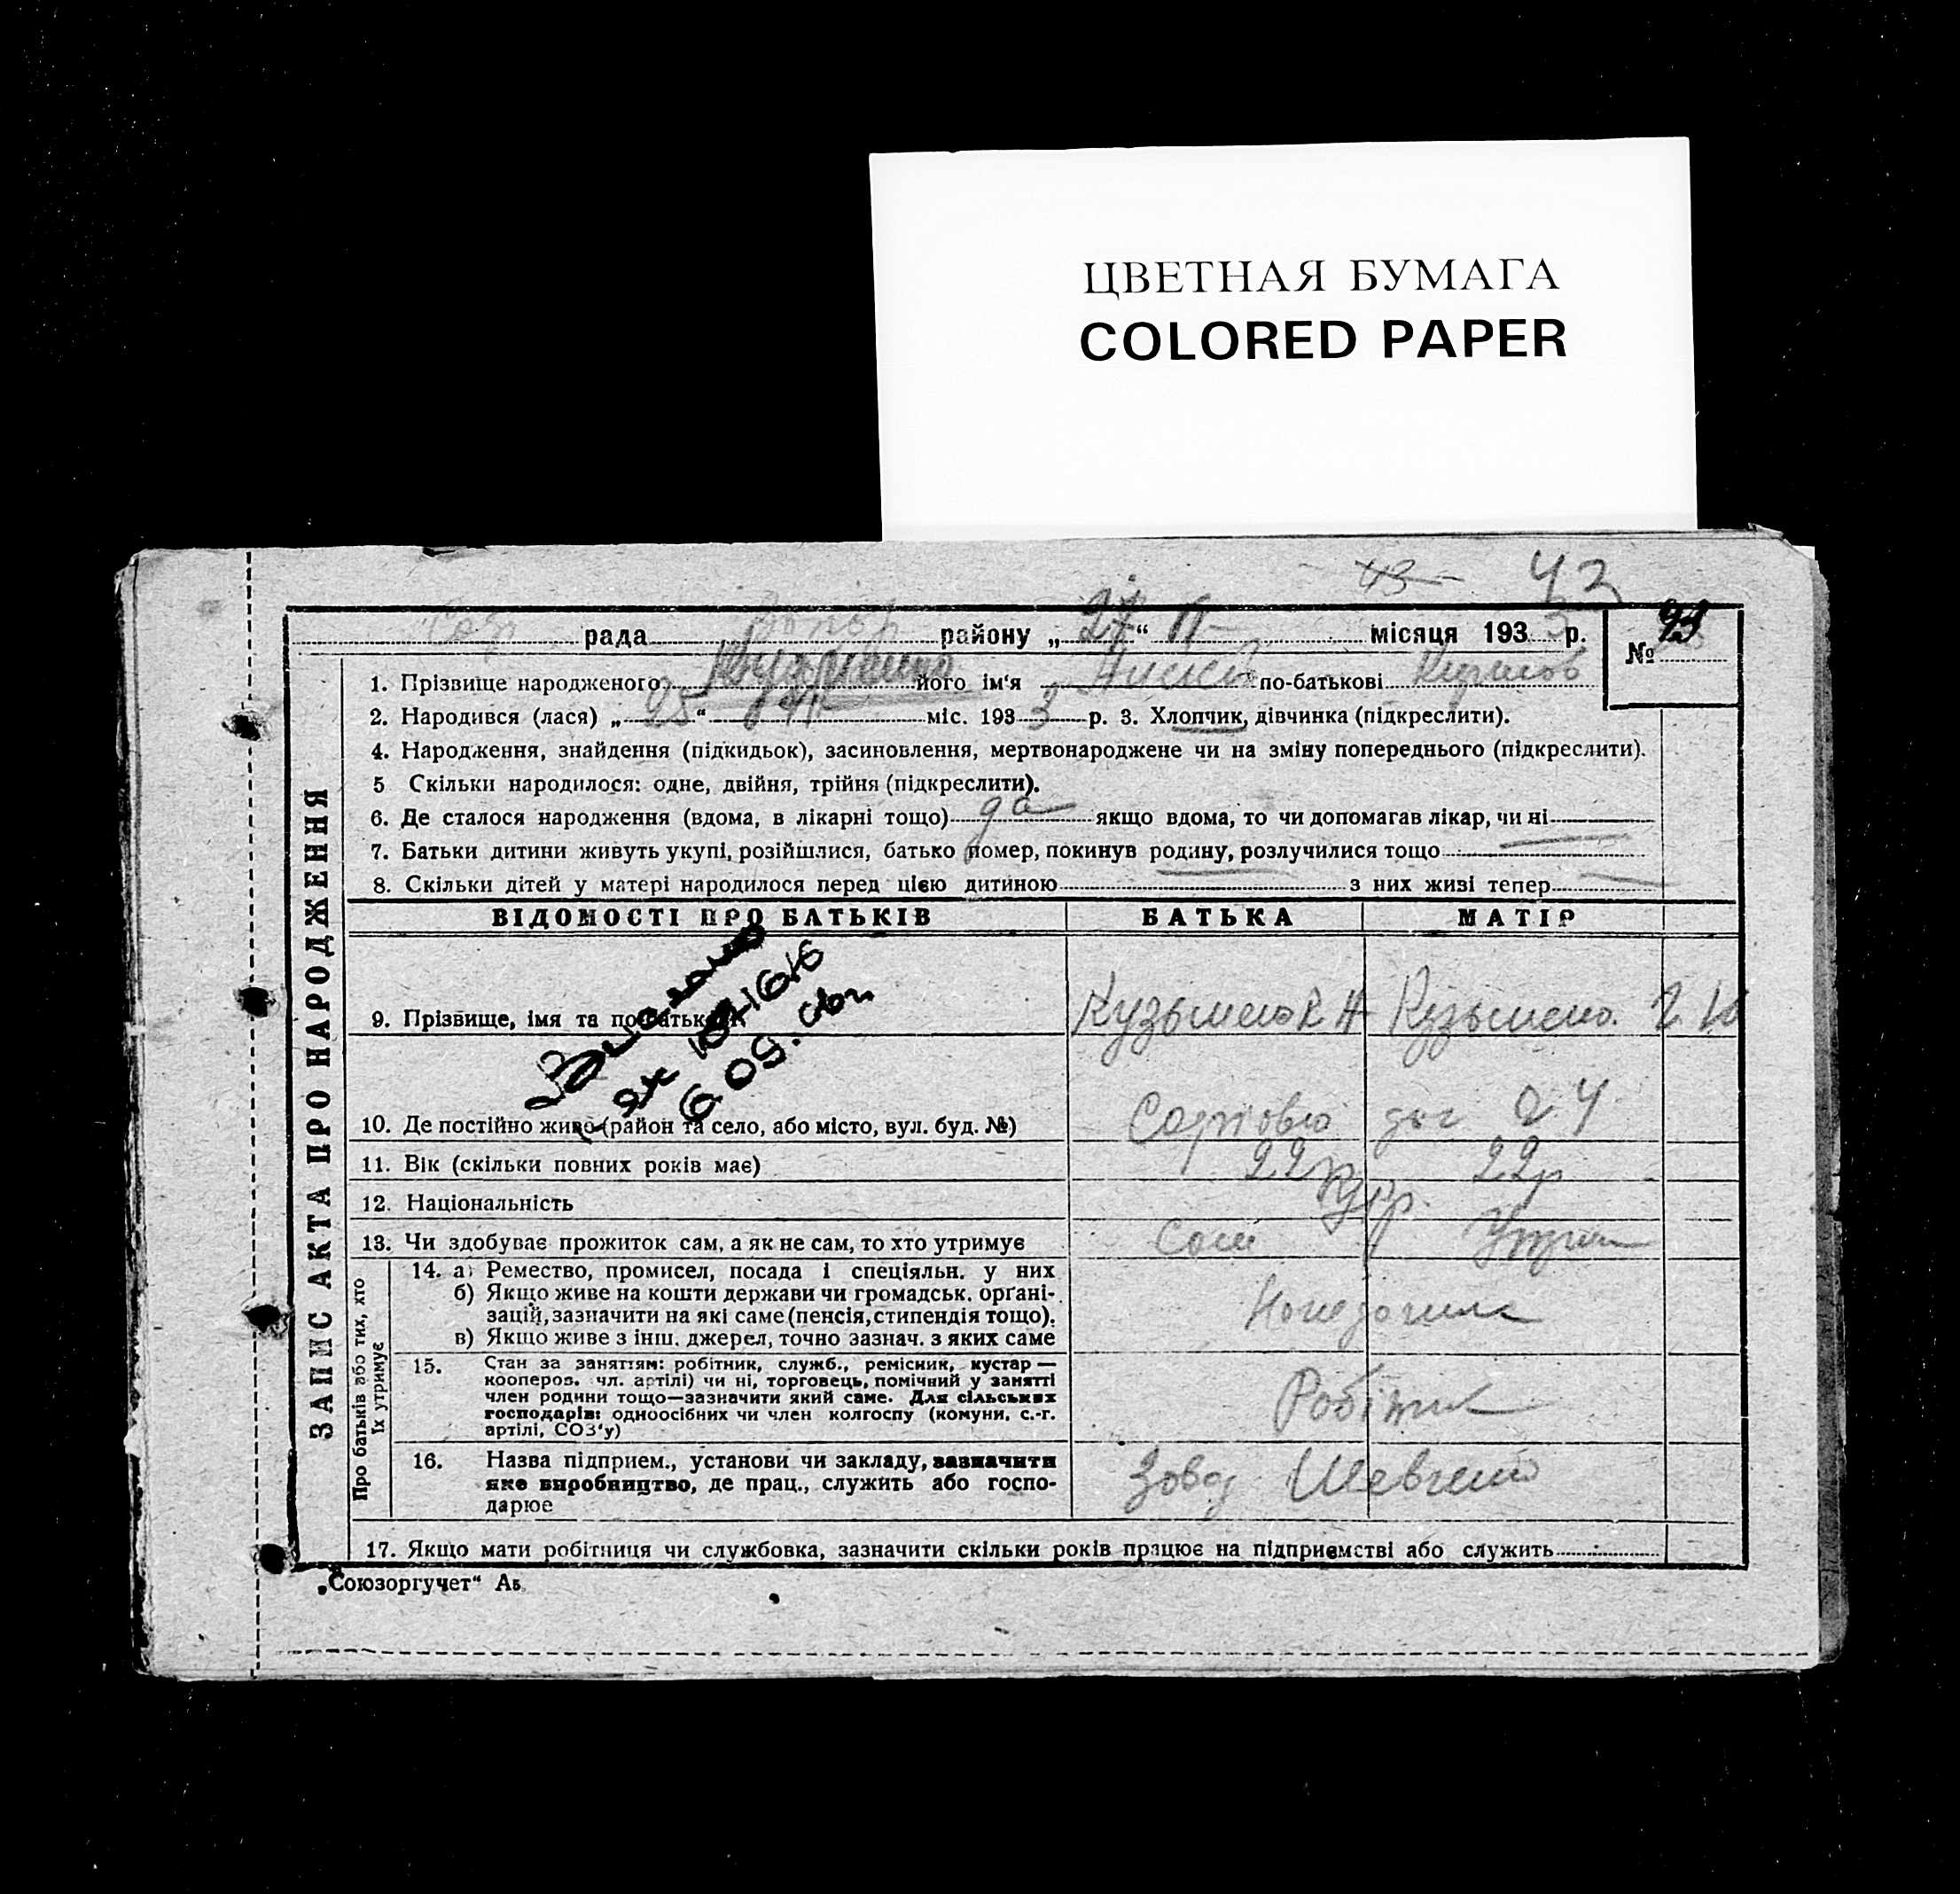 ЦВЕТНАЯ БУМАГА
COLORED PAPER
43 42
рада району „27“ II місяця 1933 р. № 93
1. Прізвище народженого його ім‘я по-батькові
2. Народився (лася) „25“ міс. 1933 р. 3. Хлопчик, дівчинка (підкреслити).
4. Народження, знайдення (підкидьок), засиновлення, мертвонароджене чи на зміну попереднього (підкреслити).
5 Скільки народилося: одне, двійня, трійня (підкреслити).
6. Де сталося народження (вдома, в лікарні тощо) да якщо вдома, то чи допомагав лікар, чи ні
7. Батьки дитини живуть укупі, розійшлися, батько помер, покинув родину, розлучилися тощо
8. Скільки дітей у матері народилося перед цією дитиною з них живі тепер
ЗАПИС АКТА ПРО НАРОДЖЕННЯ
ВІДОМОСТІ ПРО БАТЬКІВ БАТЬКА МАТІР
9. Прізвище, імя та по батькові Кузьменко
10. Де постійно живе (район та село, або місто, вул. буд. №)
11. Вік (скільки повних років має) 22р 22р
12. Національність Укр.
13. Чи здобуває прожиток сам, а як не сам, то хто утримує Сам
Про батьків або тих, хто їх утримує
14. а) Ремество, промисел, посада і спеціяльн. у них
б) Якщо живе на кошти держави чи громадськ. орґані-
зацій, зазначити на які саме (пенсія, стипендія тощо).
в) Якщо живе з інш. джерел, точно зазнач. з яких саме
15. Стан за заняттям: робітник, служб., ремісник, кустар —
коопероз. чл. артілі) чи ні, торговець, помічний у занятті
член родини тощо—зазначити який саме. Для сільських
господарів: одноосібних чи член колгоспу (комуни, с.-г.
артілі, СОЗ‘у)
Робітник
16. Назва підприєм., установи чи закладу, зазначити
яке виробництво, де прац., служить або госпо-
дарює
Завод Шевченко
17. Якщо мати робітниця чи службовка, зазначити скільки років працює на підприємстві або служить
„Союзоргучет“